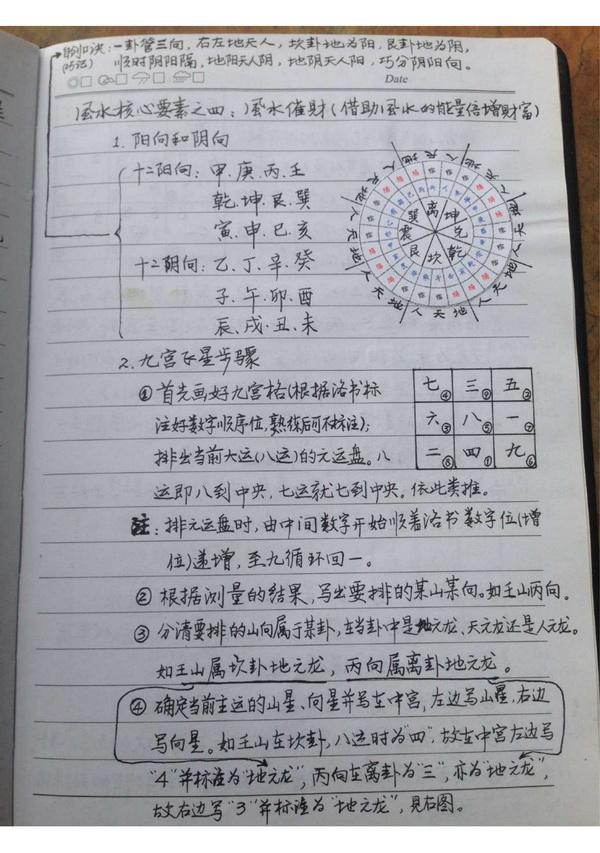 诀:一卦管三向,右左地天人,坎卦地为阳,艮卦地为阴,
(巧记) 顺时阴阳隔,地阳天人阴,地阴天人阳,巧分阴阳向。
Date
风水核心要素之四:风水催财(借助风水的能量倍增财富)
1. 阳向和阴向
十二阳向:甲.庚.丙.壬
乾.坤.艮.巽
寅.申.巳.亥
十二阴向:乙.丁.辛.癸
子.午.卯.酉
辰.戌.丑.未
离 坤 兑 乾 坎 艮 震 巽
地 天 人 地 天 人 地 天 人 地 天 人 地 天 人 地 天 人 地 天 人 地 天 人
2. 九宫飞星步骤
①首先画好九宫格(根据洛书标
注好数字顺序位,熟练后可不标注);
排出当前大运(八运)的元运盘。八
运即八到中央,七运就七到中央。依此类推。
七④ 三⑨ 五②
六③ 八⑤ 一⑦
二⑧ 四① 九⑥
注:排元运盘时,由中间数字开始顺着洛书数字位(增
位)递增,至九循环回一。
②根据测量的结果,写出要排的某山某向。如壬山丙向。
③分清要排的山向属于某卦,在当卦中是地元龙、天元龙还是人元龙。
如壬山属坎卦地元龙,丙向属离卦地元龙。
④确定当前主运的山星、向星并写在中宫,左边写山星,右边
写向星。如壬山在坎卦,八运时为“四”,故在中宫左边写
“4”并标准为“地元龙”,丙向在离卦为“三”,亦为“地元龙”,
故右边写“3”并标准为“地元龙”,见右图。